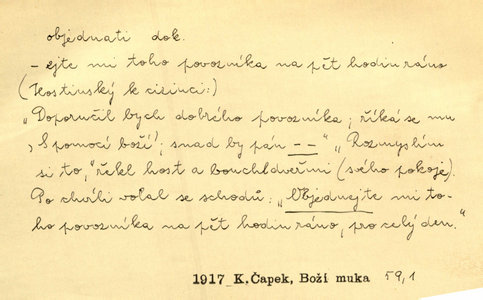 objednati dok.
– ejte mi toho povozníka na pět hodin ráno
(Hostinský k cizinci:)
„Doporučil bych dobrého povozníka; říká se mu
‚S pomocí boží‘; snad by pán – –“ „Rozmyslím
si to,“ řekl host a bouchl dveřmi (svého pokoje).
Po chvíli volal se schodů: „Objednejte mi to-
ho povozníka na pět hodin ráno, pro celý den.“
1917 K.Čapek, Boží muka 59,1